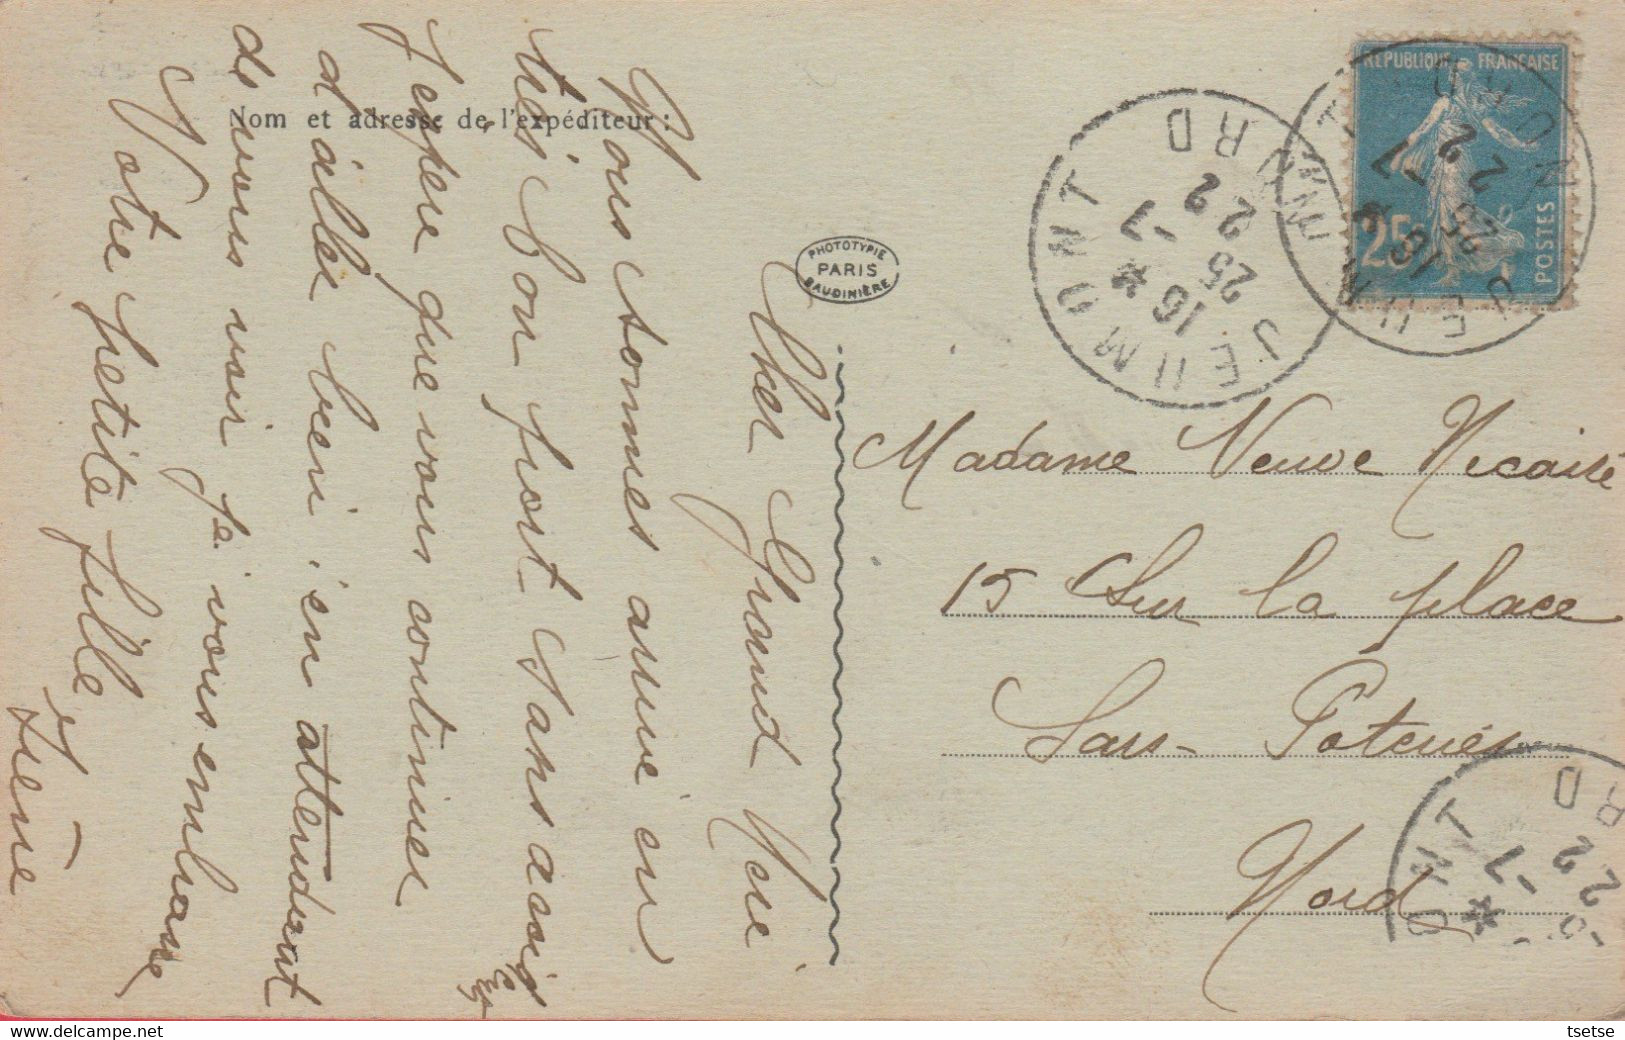 Nom et adresse de l'expéditeur :
Cher Grand Mère
Nous sommes arrivé en
très bon port sans accid
J'espère que vous continuer
d'aller bien, en attendant
de vous voir je vous embrasse
Votre petite fille
Irène
PHOTOTYPIE
PARIS
BAUDINIÈRE
REPUBLIQUE FRANÇAISE
25
POSTES
JEUMONT
NORD
16 *
25 -7
22
JEUMONT
NORD
16 *
25 -7
22
Madame Veuve Necaise
15 Sur la place
Sars-Poteries
Nord
ONT
RD
* -7
22